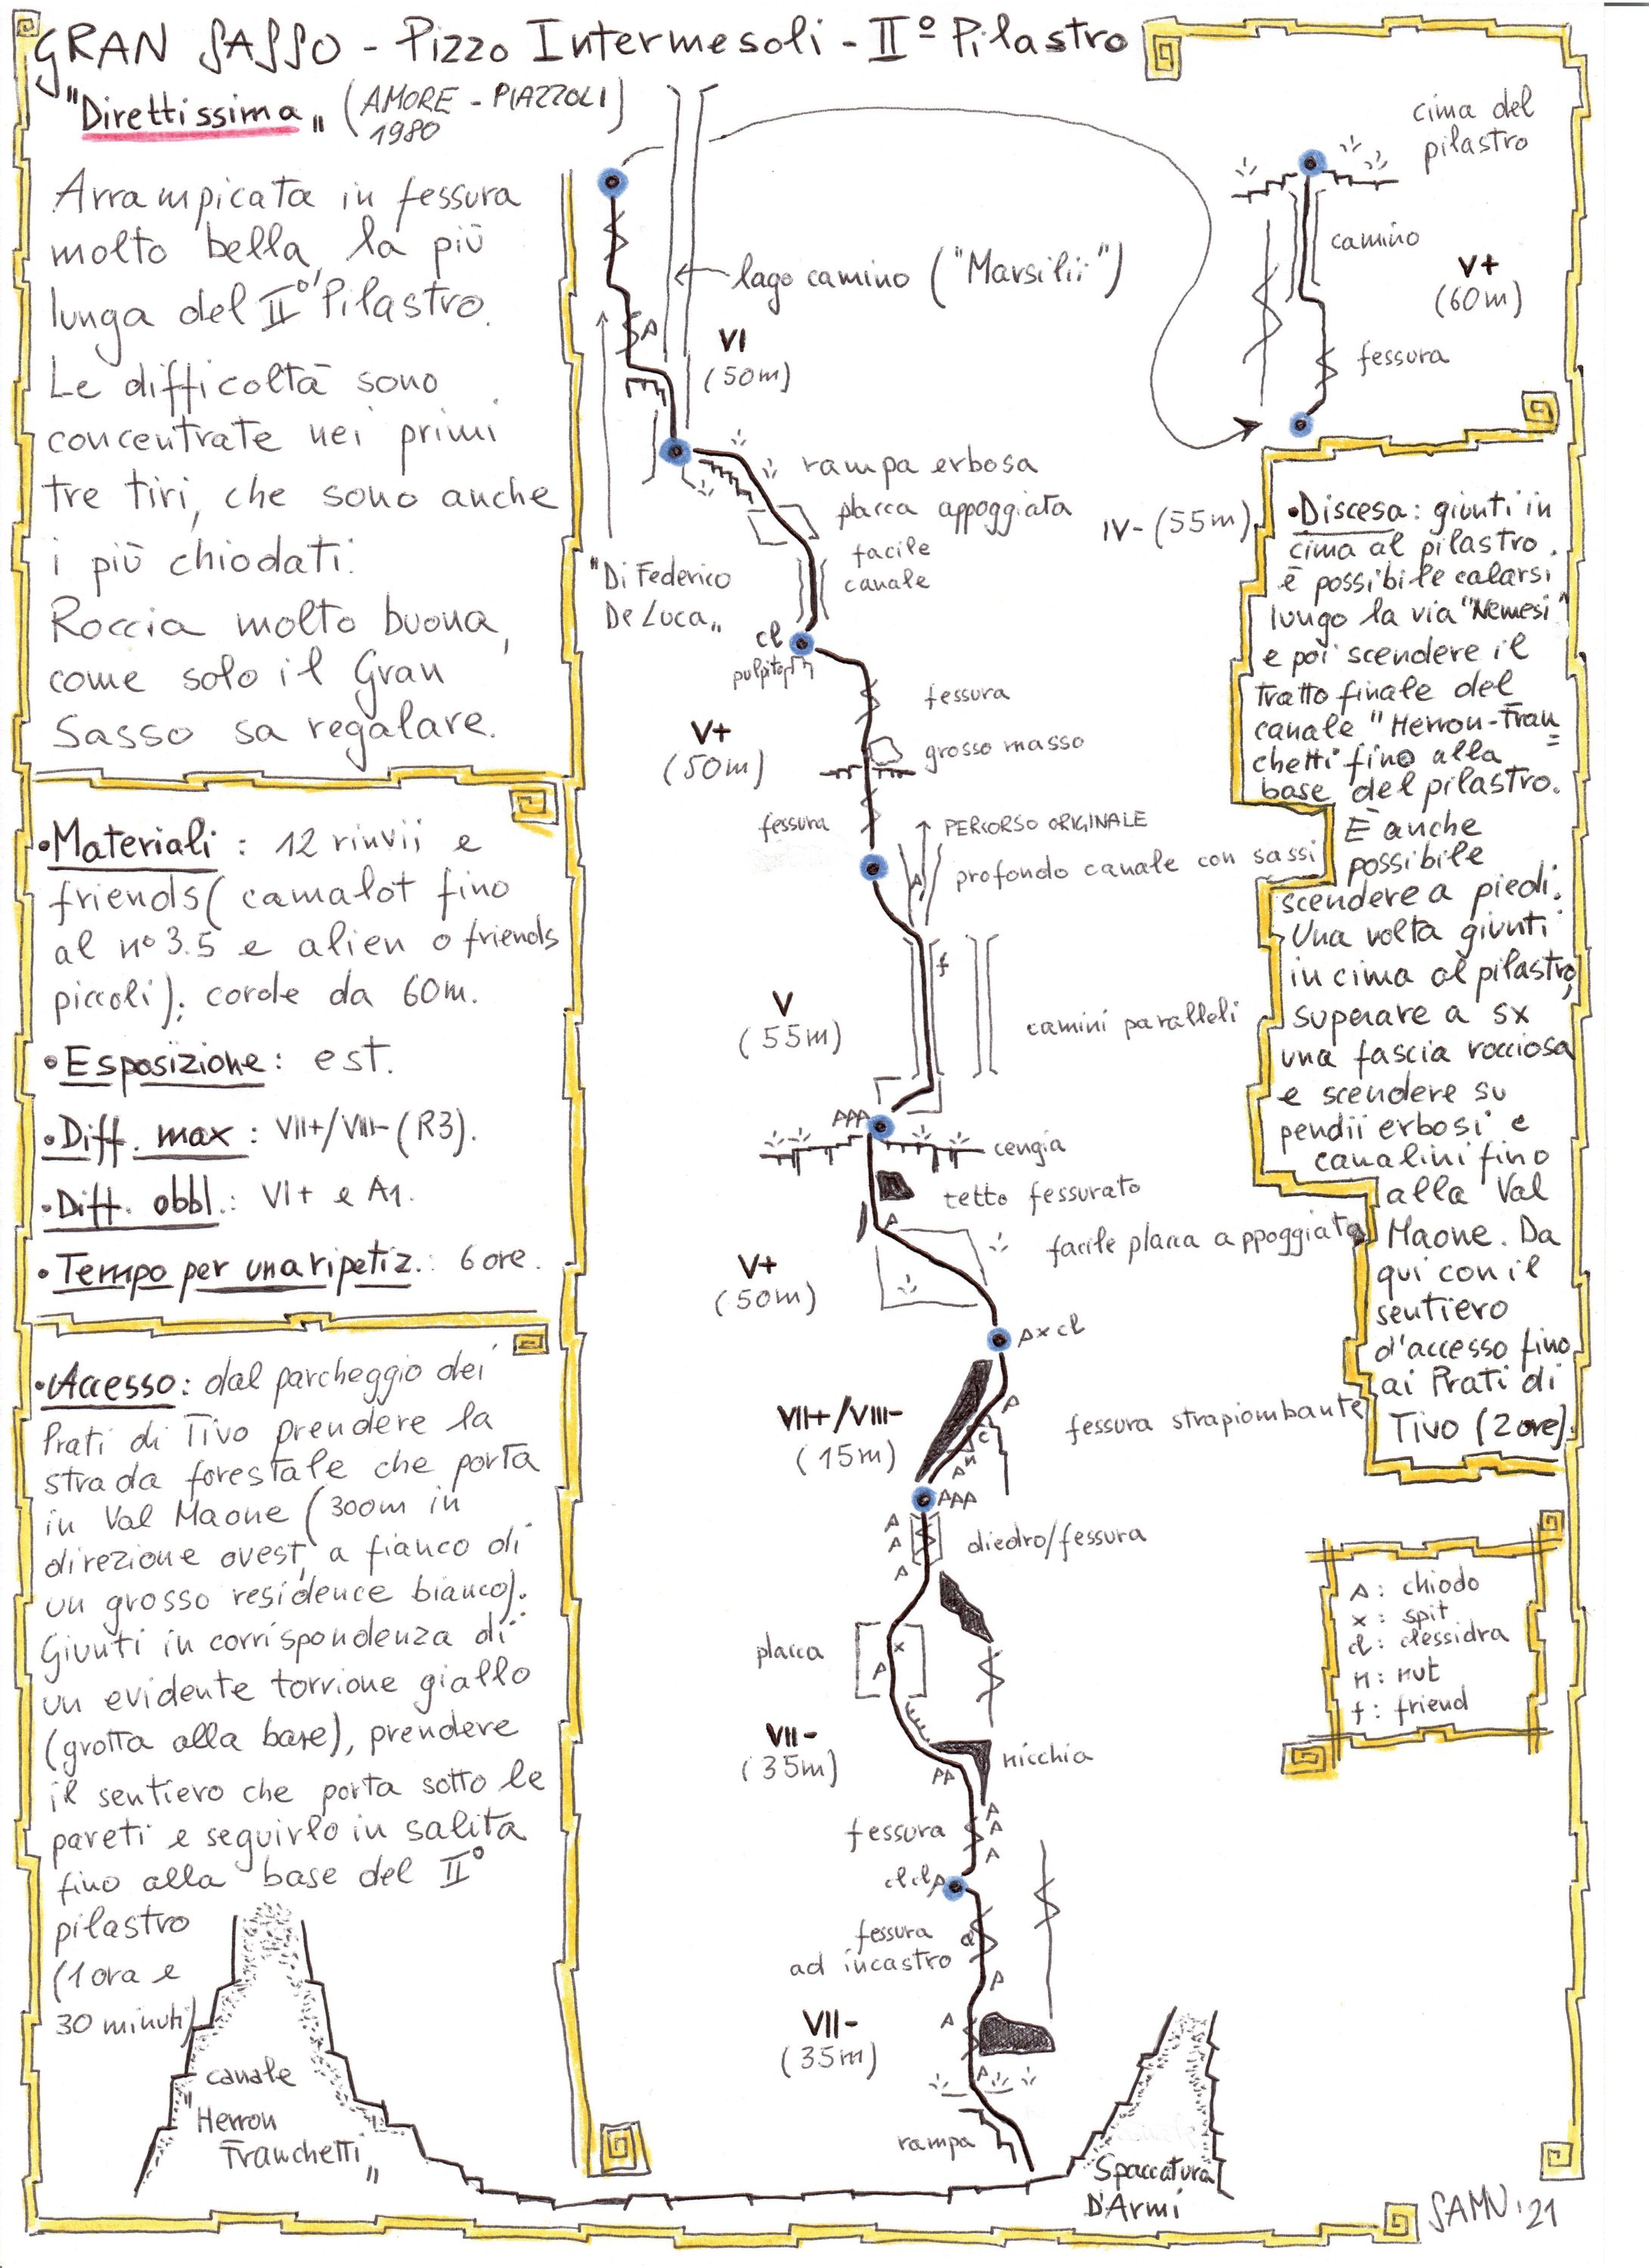 GRAN SASSO - Pizzo Intermesoli - II° Pilastro
"Direttissima" (AMORE - PIAZZOLI)
1980
Arrampicata in fessura
molto bella, la più
lunga del II° Pilastro.
Le difficoltà sono
concentrate nei primi
tre tiri, che sono anche
i più chiodati.
Roccia molto buona,
come solo il Gran
Sasso sa regalare.
• Materiali : 12 rinvii e
friends (camalot fino
al n° 3.5 e alien o friends
piccoli); corde da 60m.
• Esposizione : est.
• Diff. max : VII+/VIII- (R3).
• Diff. obbl. : VI+ e A1.
• Tempo per una ripetiz. : 6 ore.
• Accesso : dal parcheggio dei
Prati di Tivo prendere la
strada forestale che porta
in Val Maone (300m in
direzione ovest, a fianco di
un grosso residence bianco).
Giunti in corrispondenza di
un evidente torrione giallo
(grotta alla base), prendere
il sentiero che porta sotto le
pareti e seguirlo in salita
fino alla base del II°
pilastro
(1 ora e
30 minuti)
canale
"Herron
Franchetti"
cima del
pilastro
camino
V+
(60m)
fessura
lago camino ("Marsilii")
A
VI
(50m)
rampa erbosa
placca appoggiata
IV- (55m)
facile
canale
"Di Federico
De Luca"
cl
pulpito
fessura
V+
(50m)
grosso masso
fessura
PERCORSO ORIGINALE
profondo canale con sassi
A
f
V
(55m)
camini paralleli
AAA
cengia
tetto fessurato
A
facile placca appoggiata
V+
(50m)
A x cl
A
VII+/VIII-
(15m)
fessura strapiombante
c
n
A
AAA
A
A
A
diedro/fessura
placca
x
A
VII-
(35m)
nicchia
AA
A
A
A
fessura
cl cl A
fessura
ad incastro
cl
A
A
VII-
(35m)
A
rampa
Spaccatura
D'Armi
• Discesa : giunti in
cima al pilastro,
è possibile calarsi
lungo la via "Nemesi"
e poi scendere il
tratto finale del
canale "Herron-Fran=
chetti" fino alla
base del pilastro.
È anche
possibile
scendere a piedi.
Una volta giunti
in cima al pilastro,
superare a sx
una fascia rocciosa
e scendere su
pendii erbosi e
canalini fino
alla Val
Maone. Da
qui con il
sentiero
d'accesso fino
ai Prati di
Tivo (2 ore).
A : chiodo
x : spit
cl : clessidra
n : nut
f : friend
SAMU '21